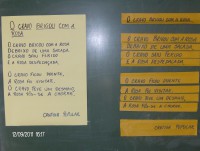 O CRAVO BRIGOU COM A
ROSA
O CRAVO BRIGOU COM A ROSA
DEBAIXO DE UMA SACADA
O CRAVO SAIU FERIDO
E A ROSA DESPEDAÇADA
O CRAVO FICOU DOENTE
A ROSA FOI VISITAR
O CRAVO TEVE UM DESMAIO
A ROSA PÔS-SE A CHORAR.
CANTIGA POPULAR
12/09/2011 16:17
O CRAVO BRIGOU COM A ROSA
O CRAVO BRIGOU COM A ROSA
DEBAIXO DE UMA SACADA
O CRAVO SAIU FERIDO
E A ROSA DESPEDAÇADA
O CRAVO FICOU DOENTE
A ROSA FOI VISITAR
O CRAVO TEVE UM DESMAIO
A ROSA PÔS-SE A CHORAR.
CANTIGA POPULAR